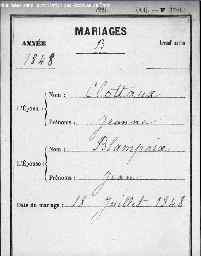 MARIAGES
B
ANNÉE
1848
L'Époux
Nom : Clottaux
Prénoms : Jeanne
L'Épouse
Nom : Blampain
Prénoms : Jean
Date du mariage : 18 Juillet 1848